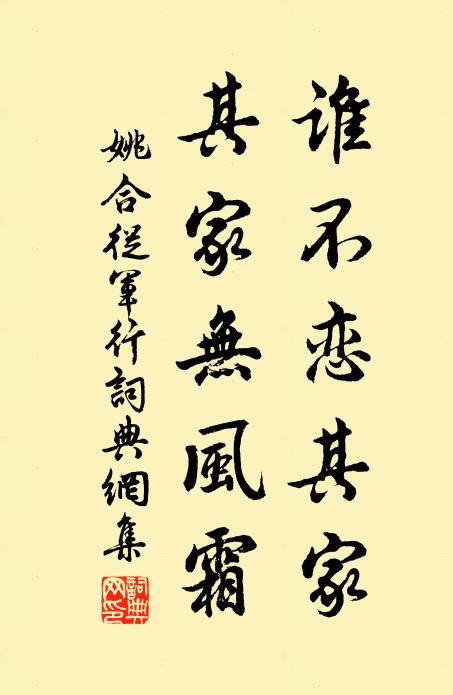 誰不恋其家
其家無風霜
姚合從軍行詞典網集
詞典網印